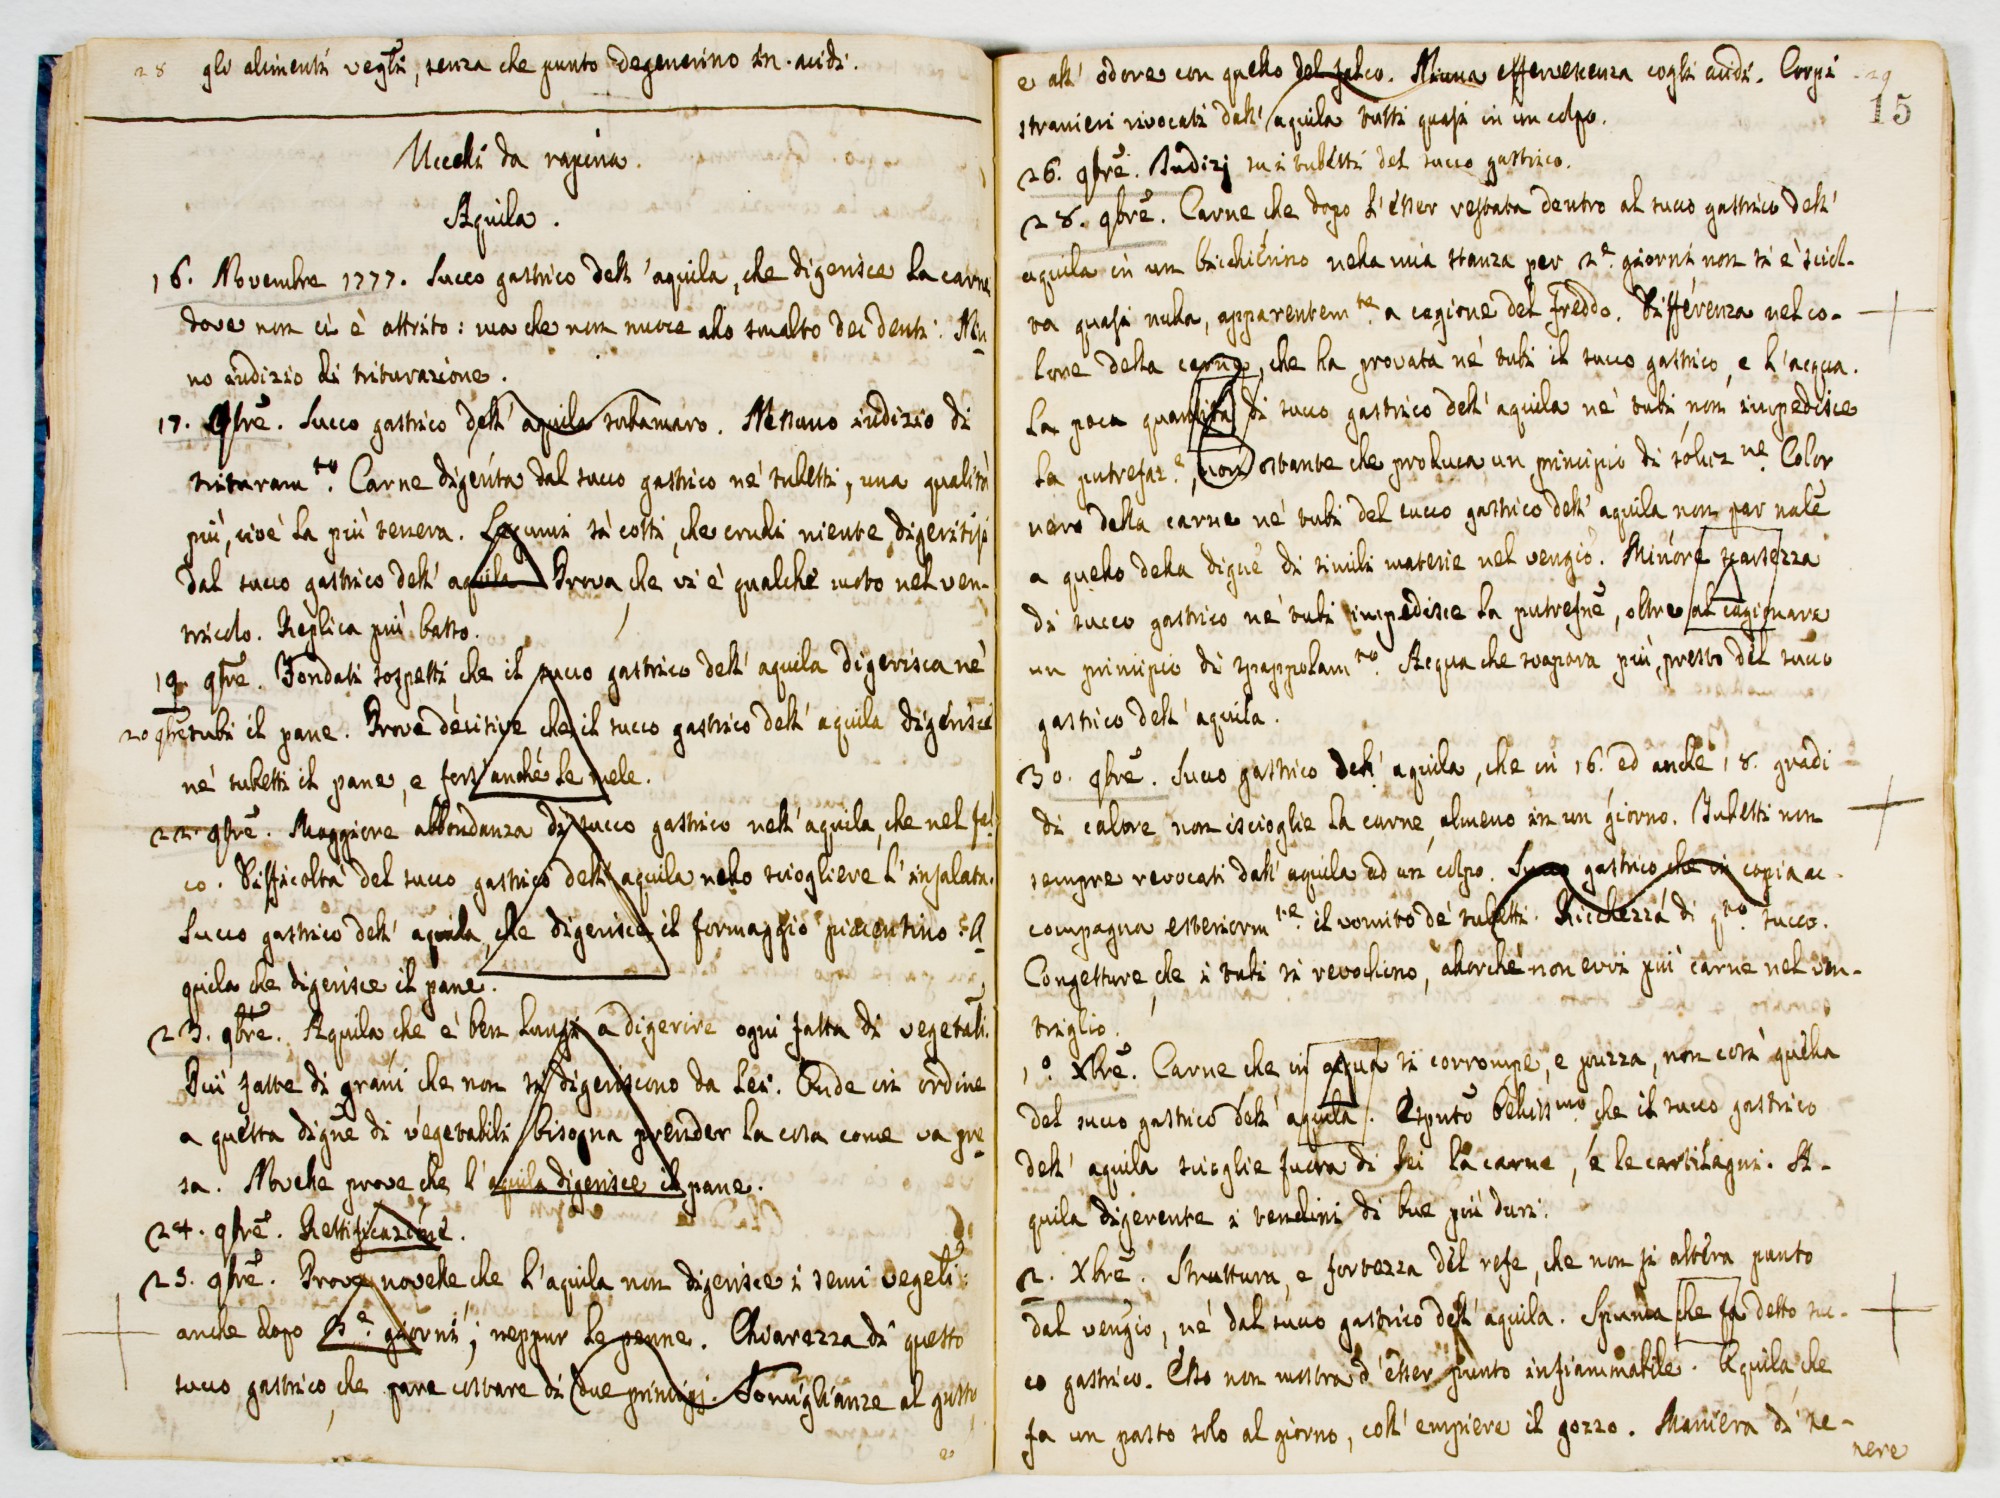 28 gli alimenti vegli, senza che punto degenerino in acidi.
Uccelli da rapina.
Aquila.
16. Novembre 1777. Succo gastrico dell'aquila, che digerisce la carne
dove non ci è attrito: ma che non nuoce allo smalto dei denti. Niu
no indizio di triturazione.
17. 9bre. Succo gastrico dell'aquila salamaro. Nessuno indizio di
trituramto. Carne digerita dal succo gastrico ne' tubetti, una qualità
più, cioè la più tenera. Legumi sì cotti, che crudi niente digeritisi
dal succo gastrico dell'aquila. Prova, che vi è qualche moto nel ven-
tricolo. Replica più basso.
19. 9bre. Fondati sospetti che il succo gastrico dell'aquila digerisca ne'
20 9bre tubi il pane. Prove decisive che il succo gastrico dell'aquila digerisce
ne' tubetti il pane, e fors'anche le mele.
22. 9bre. Maggiore abbondanza di succo gastrico nell'aquila, che nel fal
co. Difficoltà del succo gastrico dell'aquila nello sciogliere l'insalata.
Succo gastrico dell'aquila, che digerisce il formaggio piacentino. A
quila che digerisce il pane.
23. 9bre. Aquila che è ben lungi a digerire ogni fatta di vegetali.
Più fatte di grani che non si digeriscono da lei. Onde in ordine
a questa digne di vegetabili bisogna prender la cosa come va pre
sa. Nuove prove che l'aquila digerisce il pane.
24. 9bre. Rettificazione.
25. 9bre. Prove novelle che l'aquila non digerisce i semi vegeli:
anche dopo giorni; neppur le penne. Chiarezza di questo
succo gastrico, che pare costare di due principj. Somiglianze al gusto,
e
e all'odore con quello del falco. Niuna effervescenza cogli acidi. Corpi 29
15
stranieri rivocati dall'aquila tutti quasi in un colpo.
26. 9bre. Indizj su i tubetti del succo gastrico.
28. 9bre. Carne che dopo l'esser restata dentro al succo gastrico dell'
aquila in un bicchierino nella mia stanza per giorni non si è sciol-
ta quasi nulla, apparentemte a cagione del freddo. Differenza nel co-
lore della carne, che ha provata ne' tubi il succo gastrico, e l'acqua.
La poca quantità di succo gastrico dell'aquila ne' tubi non impedisce
la putrefaze, non ostante che produca un principio di soluzne. Color
nero della carne ne' tubi del succo gastrico dell'aquila non par nale
a quello della digne di simili materie nel vengio. Minore scarsezza
di succo gastrico ne' tubi impedisce la putrefne, oltre al cagionare
un principio di spappolamto. Acqua che svapora più presto del succo
gastrico dell'aquila.
30. 9bre. Succo gastrico dell'aquila, che in 16. ed anche 18. gradi
di calore non iscioglie la carne, almeno in un giorno. Tubetti non
sempre revocati dall'aquila ad un colpo. Succo gastrico che in copia ac-
compagna esteriormte il vomito de' tubetti. Ricchezza di qto succo.
Congetture, che i tubi si revochino, allorché non evvi più carne nel ven-
triglio.
1º Xbre. Carne che in acqua si corrompe, e puzza, non così quella
del succo gastrico dell'aquila. Esputo bellissmo che il succo gastrico
dell'aquila scioglie fuora di lei la carne, e le cartilagini. A-
quila digerente i tendini di bue più duri.
2. Xbre. Struttura, e fortezza del refe, che non si altera punto
dal vengio, né dal succo gastrico dell'aquila. Spuma che fa detto suc-
co gastrico. Esso non mostra d'esser punto infiammabile. Aquila che
fa un pasto solo al giorno, coll'empiere il gozzo. Maniera di te-
nere